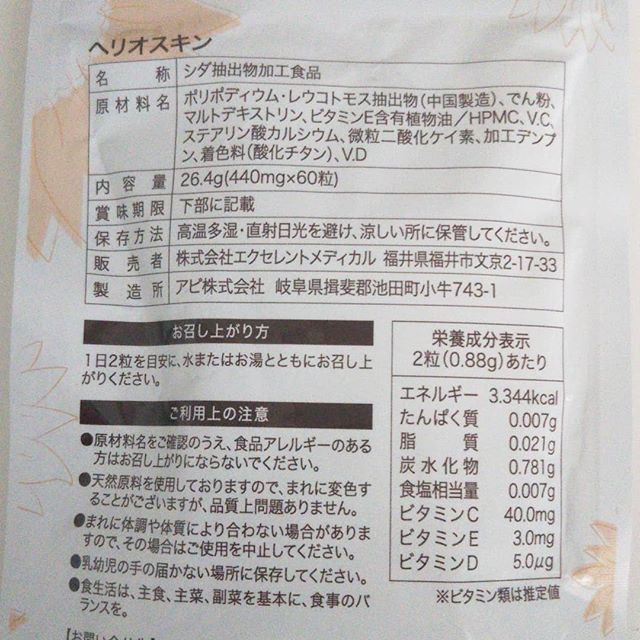 ヘリオスキン
名 称 シダ抽出物加工食品
原材料名 ポリポディウム・レウコトモス抽出物(中国製造)、でん粉、
マルトデキストリン、ビタミンE含有植物油/HPMC、V.C、
ステアリン酸カルシウム、微粒二酸化ケイ素、加工デンプ
ン、着色料(酸化チタン)、V.D
内容量 26.4g(440mg×60粒)
賞味期限 下部に記載
保存方法 高温多湿・直射日光を避け、涼しい所に保管してください。
販売者 株式会社エクセレントメディカル 福井県福井市文京2-17-33
製造所 アピ株式会社 岐阜県揖斐郡池田町小牛743-1
お召し上がり方
1日2粒を目安に、水またはお湯とともにお召し上
がりください。
ご利用上の注意
●原材料名をご確認のうえ、食品アレルギーのある
方はお召し上がりにならないでください。
●天然原料を使用しておりますので、まれに変色す
ることがございますが、品質上問題ありません。
●まれに体調や体質により合わない場合がありま
すので、その場合はご使用を中止してください。
●乳幼児の手の届かない場所に保存してください。
●食生活は、主食、主菜、副菜を基本に、食事のバ
ランスを。
栄養成分表示
2粒(0.88g)あたり
エネルギー 3.344kcal
たんぱく質 0.007g
脂質 0.021g
炭水化物 0.781g
食塩相当量 0.007g
ビタミンC 40.0mg
ビタミンE 3.0mg
ビタミンD 5.0μg
※ビタミン類は推定値